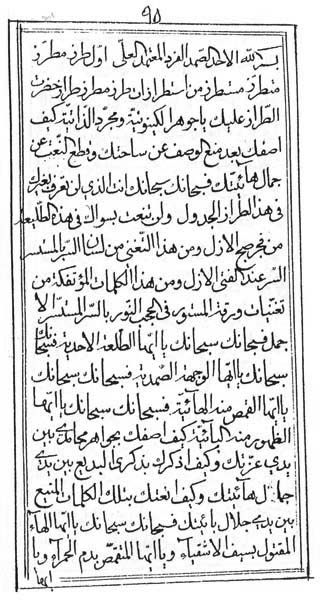 ٩٥
بسم الله الاحد الصمد الفرد المعتمد العلی اول طرز مطرز
متطرز مستطرز من استطراز ان طرز مطرز طراز حضرت
الطراز عليك ياجوهر الكينونية ومجرد الذاتية كيف
اصفك بعد منع الوصف عن ساحتك وقطع النعت عن
جمال هائيتك فسبحانك سبحانك انت الذي لن تعرف بغيرك
فى هذا الطراز الجدول ولن تنعت بسواك فى هذه الطليعة
من فجر صبح الازل ومن هذا التغنى من لسان السر المستسر
السر عند الفتى الازل ومن هذا الكلمات المؤتفكة من
تغنيات ورقة المستورة فى الحجب النور بالسر المستسر الا
جمل فسبحانك سبحانك يا ايها الطلعة الاحدية فسبحانك
سبحانك يا ايها الوجهة الصمدية فسبحانك سبحانك
يا ايها القمص من الهائية فسبحانك سبحانك يا ايها
الظهور من كيف اصفك بجواهر مجاتدى بين
يدي عزتك وكيف اذكرك بذكرى البديع بين يدى
جمال هائيتك وكيف انعتك بتلك الكلمات المنيع
بين يدى جلال بائيتك فسبحانك سبحانك يا ايها الهاء
المقتول بسيف الاشقياء ويا ايها المتقمص بدم الحمراء ويا
ايها